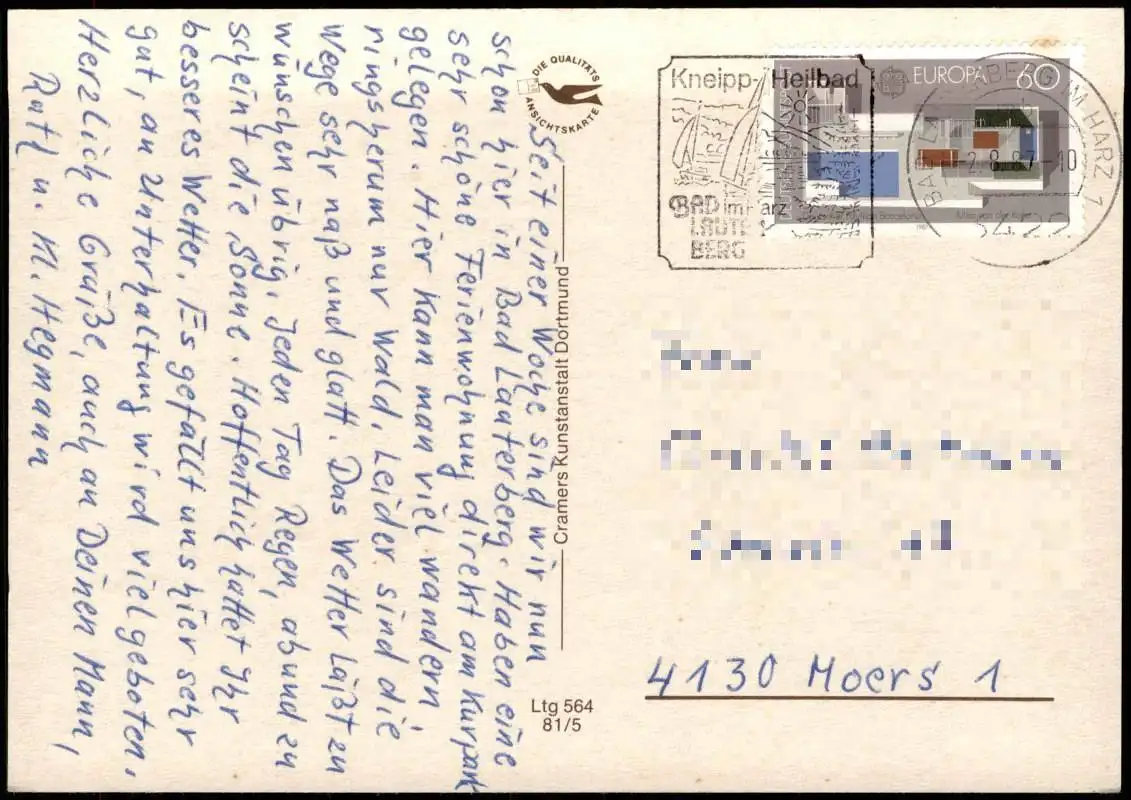 Seit einer Woche sind wir nun
schon hier in Bad Lauterberg. Haben eine
sehr schöne Ferienwohnung direkt am Kurpark
gelegen. Hier kann man viel wandern
ringsherum nur Wald. Leider sind die
Wege sehr naß und glatt. Das Wetter läßt zu
wünschen übrig. Jeden Tag Regen, ab und zu
scheint die Sonne. Hoffentlich hattet Ihr
besseres Wetter. Es gefällt uns hier sehr
gut, an Unterhaltung wird viel geboten.
Herzliche Grüße, auch an Deinen Mann,
Ruth u. M. Hegmann
DIE QUALITÄTS
ANSICHTSKARTE
Cramers Kunstanstalt Dortmund
Ltg 564
81/5
Kneipp-Heilbad
BAD im Harz
LAUTER
BERG
EUROPA 60
BERG IM HARZ 1
2.8.87-10
3422
4130 Moers 1